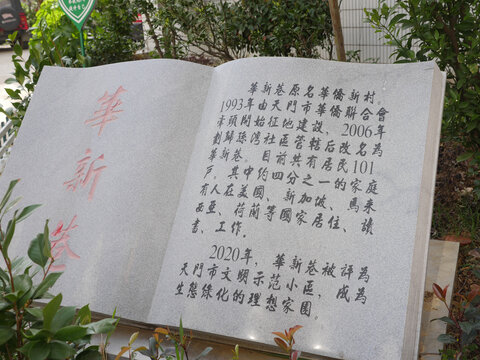 華新巷
華新巷原名華僑新村，
1993年由天門市華僑聯合會
牽頭開始征地建設，2006年
劃歸孫灣社區管轄后改名為
華新巷。目前共有居民101
戶，其中約四分之一的家庭
有人在美國、新加坡、馬來
西亞、荷蘭等國家居住、讀
書、工作。
2020年，華新巷被評為
天門市文明示范小區，成為
生態綠化的理想家園。